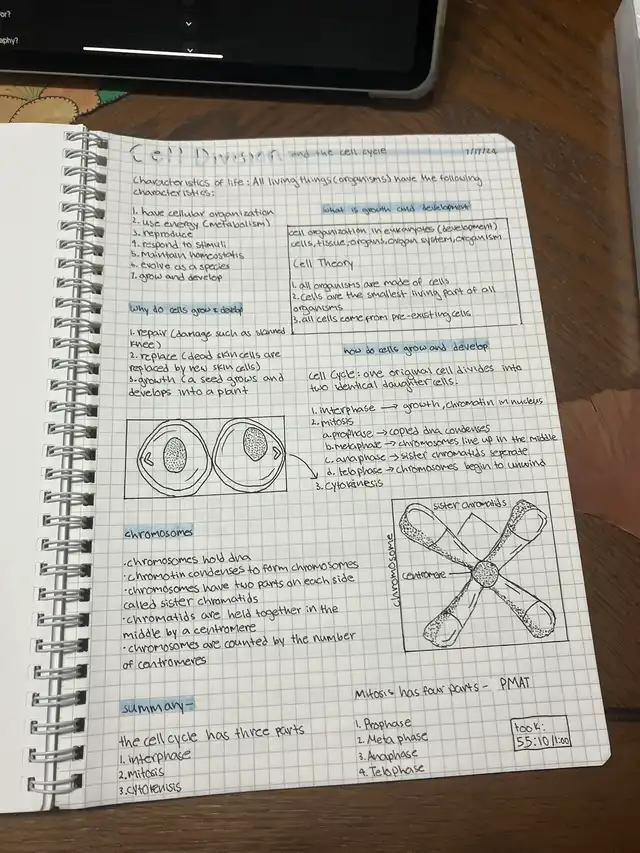 or?
aphy?
Cell Division and the cell cycle
Characteristics of life: All living things (organisms) have the following
characteristics:
1. have cellular organization
2. use energy (metabolism)
3. reproduce
4. respond to stimuli
5. Maintain homeostatis
6. evolve as a species
7. grow and develop
what is growth and development
cell organization in eukaryotes (development)
cells, tissue, organs, organ system, organism
Cell Theory
1. all organisms are made of cells
2. cells are the smallest living part of all
organisms
3. all cells come from pre-existing cells
why do cells grow & develop
1. repair (damage such as skinned
knee)
2. replace (dead skin cells are
replaced by new skin cells)
3. growth (a seed grows and
develops into a plant
how do cells grow and develop
cell cycle: one original cell divides into
two identical daughter cells.
1. interphase → growth, chromatin in nucleus
2. mitosis
a. prophase → copied dna condenses
b. metaphase → chromosomes line up in the middle
c. anaphase → sister chromatids seperate
d. telophase → chromosomes begin to unwind
3. cytokinesis
chromosomes
·chromosomes hold dna
·chromotin condenses to form chromosomes
·chromosomes have two parts on each side
called sister chromatids
·chromatids are held together in the
middle by a centromere
·chromosomes are counted by the number
of centromeres
sister chromatids
chromosome
centromere
summary-
the cell cycle has three parts
1. interphase
2. mitosis
3. cytokenisis
Mitosis has four parts - PMAT
1. Prophase
2. Metaphase
3. Anaphase
4. Telophase
took:
55:10/1:00